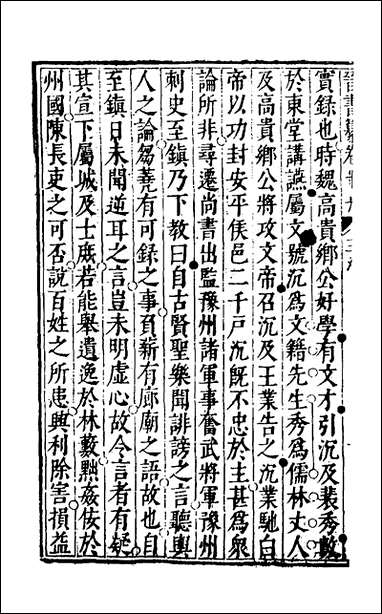 實錄也時魏高貴鄉公好學有文才引沉及裴秀數
於東堂講讌屬文號沉為文籍先生秀為儒林丈人
及高貴鄉公將攻文帝召沉及王業告之沉業馳白
帝以功封安平侯邑二千戶沉既不忠於主甚為衆
論所非尋遷尚書出監豫州諸軍事奮武將軍豫州
刺史至鎮乃下教曰自古賢聖樂聞誹謗之言聽輿
人之論芻蕘有可錄之事負薪有廊廟之語故也自
至鎮日未聞逆耳之言豈未明虛心故令言者有疑
其宣下屬城及士庶若能舉遺逸於林藪黜姦佞於
州國陳長吏之可否說百姓之所患興利除害損益